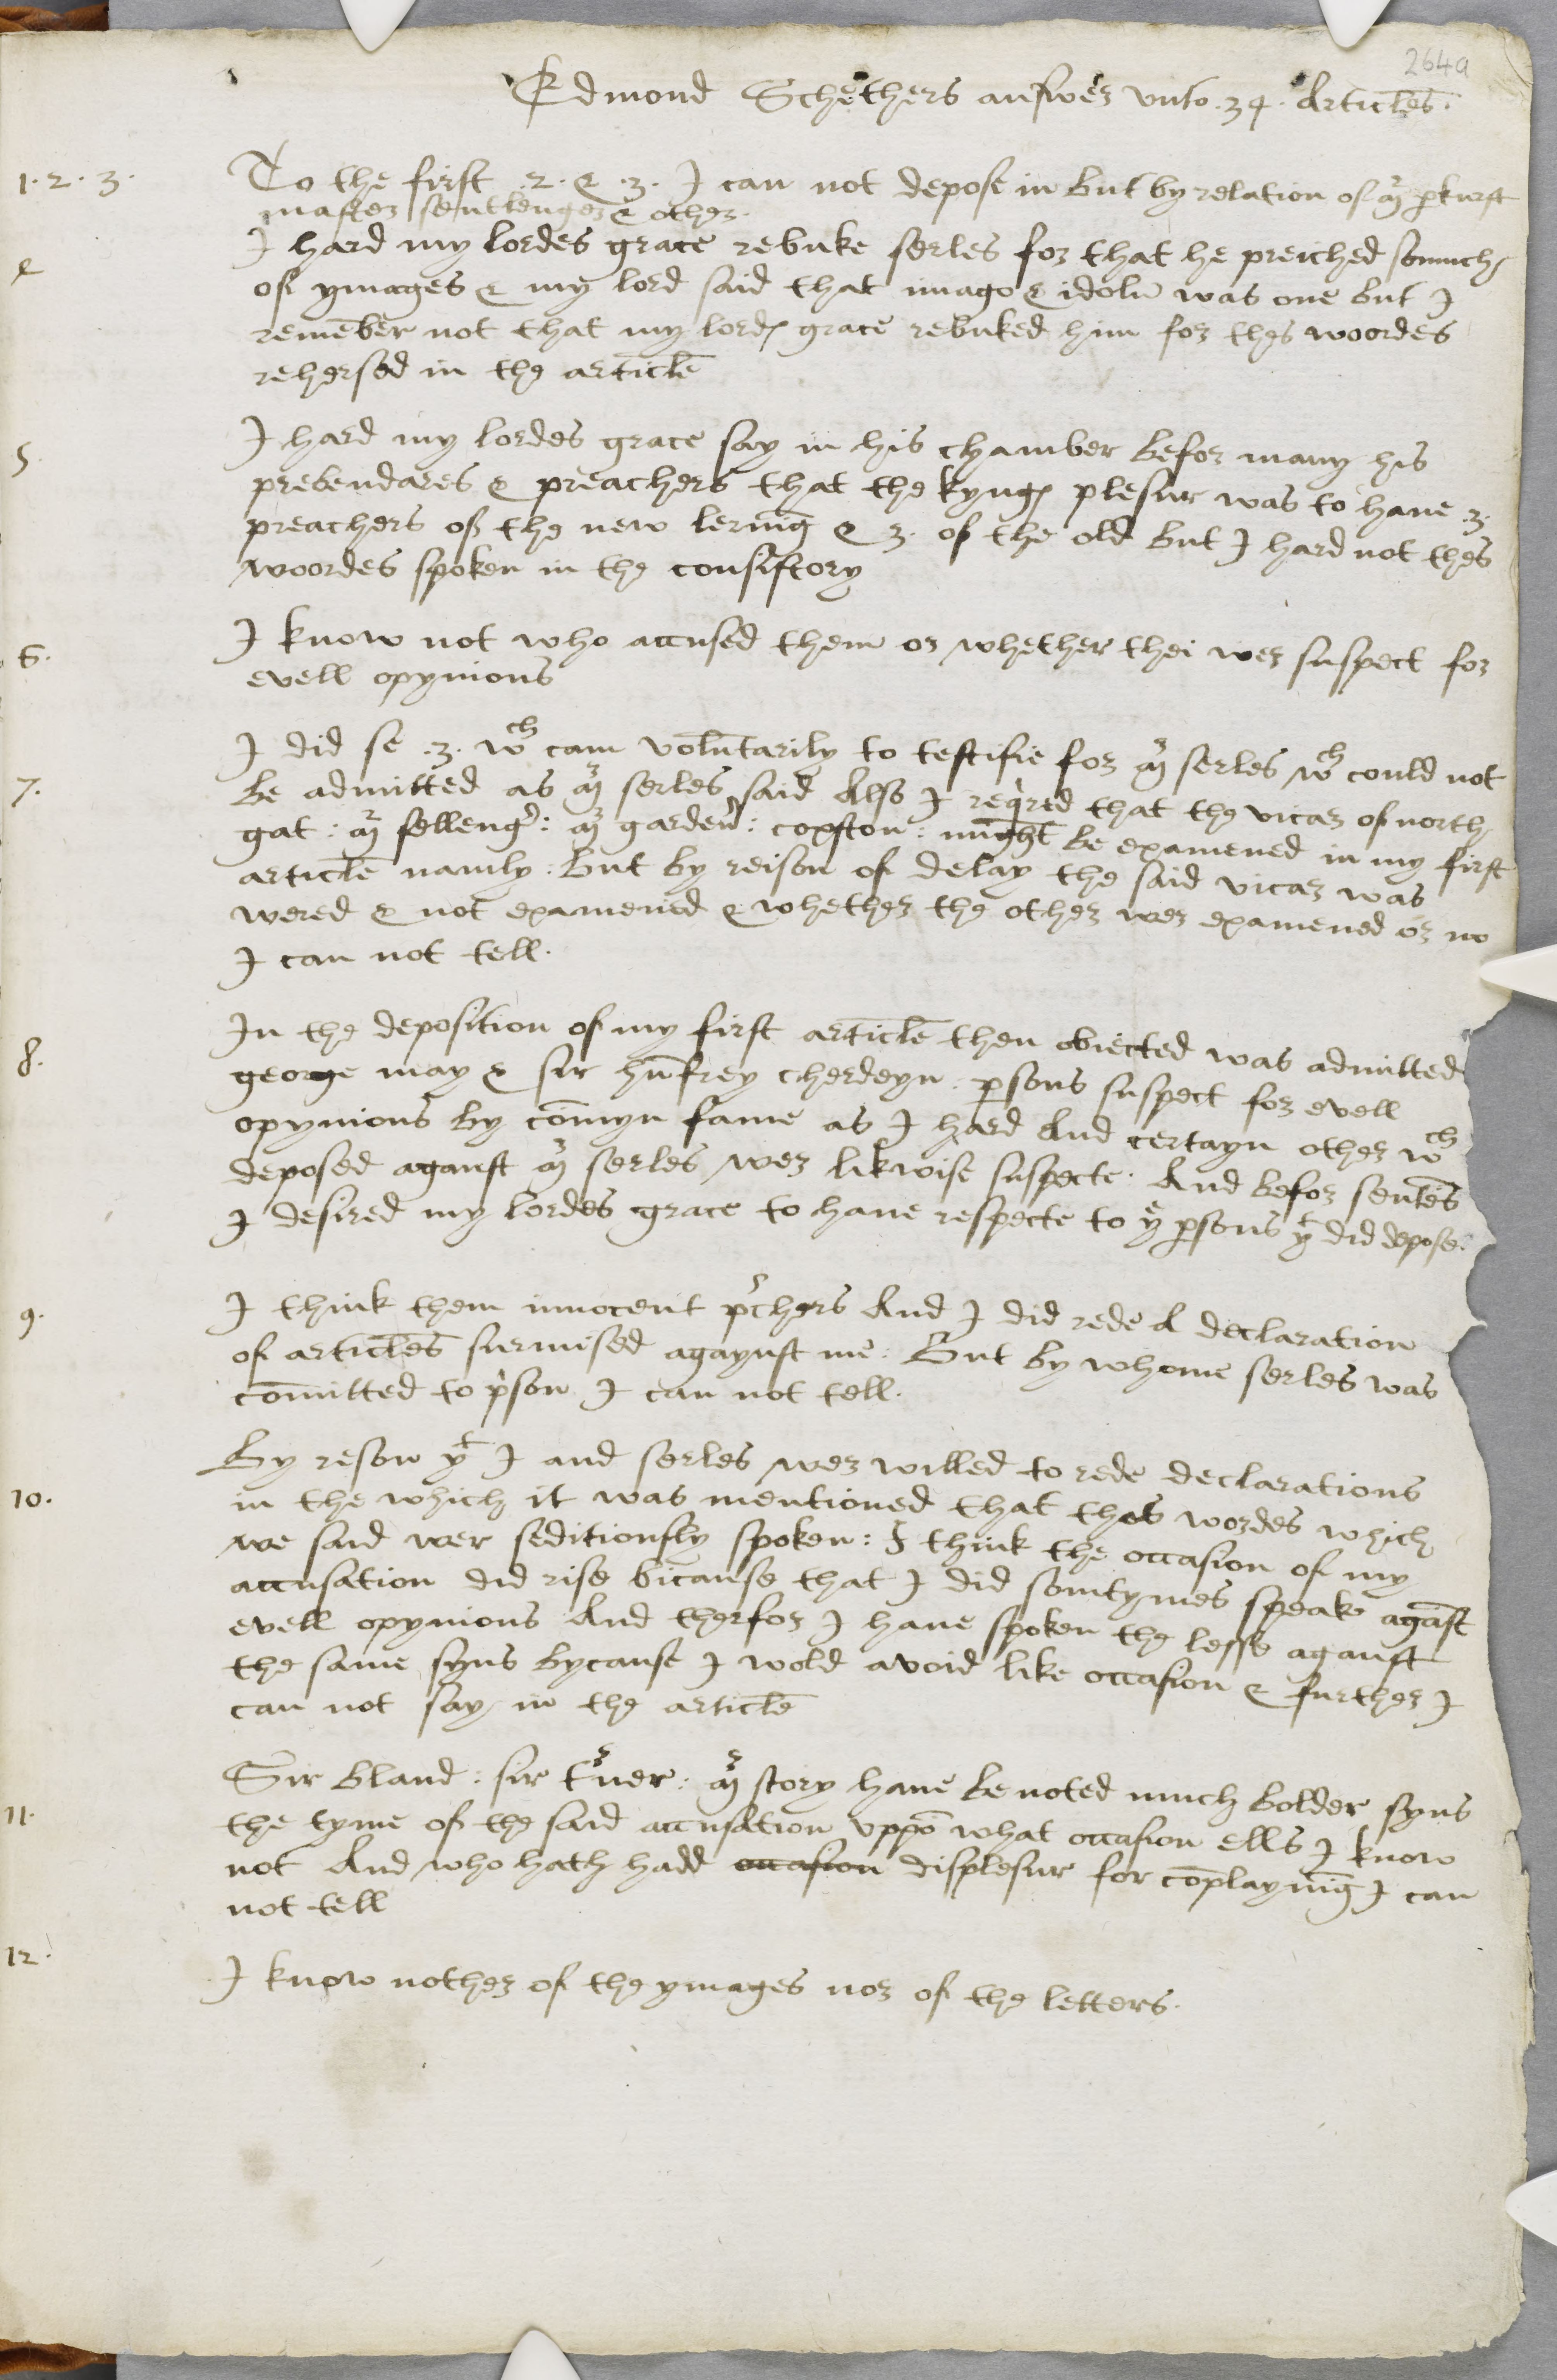 264a
Edmond Schethers answer unto .34. Articles.
1. 2. 3. To the first .2. & .3. I can not depose in but by relation of mr parkurst
master sentlenger & other.
I hard my lordes grace rebuke serles for that he preiched somuch
4 of ymages & my lord said that imago & idolū was one but I
remēber not that my lordes grace rebuked him for thes woordes
rehersed in the article
I hard my lordes grace say in his chamber befor many his
5 prebendares & preachers that the kynges plesur was to have .3.
preachers of the new lernīg & 3. of the old but I hard not thes
woordes spoken in the consistory
I know not who accused them or whether thei wer suspect for
6. evell opynions
I did se .3. wch cam voluntarily to testifie for mr serles wch could not
7. be admitted as mr serles said Also I reqired that the vicar of north
gat : mr sellenger : mr gardener : copston : might be examened in my first
article namly : But by reison of delay the said vicar was
wered & not examened & whether the other wer examened or no
I can not tell.
In the deposition of my first article then obiected was admitted
8. george may & sir hūfrey cherdeyn. psons suspect for evell
opynions by cōmyn fame as I hard And certayn other wch
deposed aganst mr serles wer likwise suspecte. And befor sentēs
I desired my lordes grace to have respecte to ye psons yt did depose.
9. I think them innocent prchers And I did rede A declaration
of articles surmised agaynst me : But by whome serles was
cōmitted to prson I can not tell.
By reson yt I and serles wer willed to rede declarations
10. in the which it was mentioned that thes wordes which
we said wer seditiously spoken : I think the occasion of my
accusation did rise bicause that I did somtymes speak agāst
evell opynions And therfor I have spoken the lesse aganst
the same syns bycause I wold avoid like occasion & further I
can not say in the article
Sir bland : sir turner : mr story have be noted much bolder syns
11. the tyme of the said accusation uppō what occasion ells I know
not And who hath hadd occasion displesur for cōplaynīg I can
not tell
12. I know nother of the ymages nor of the letters.